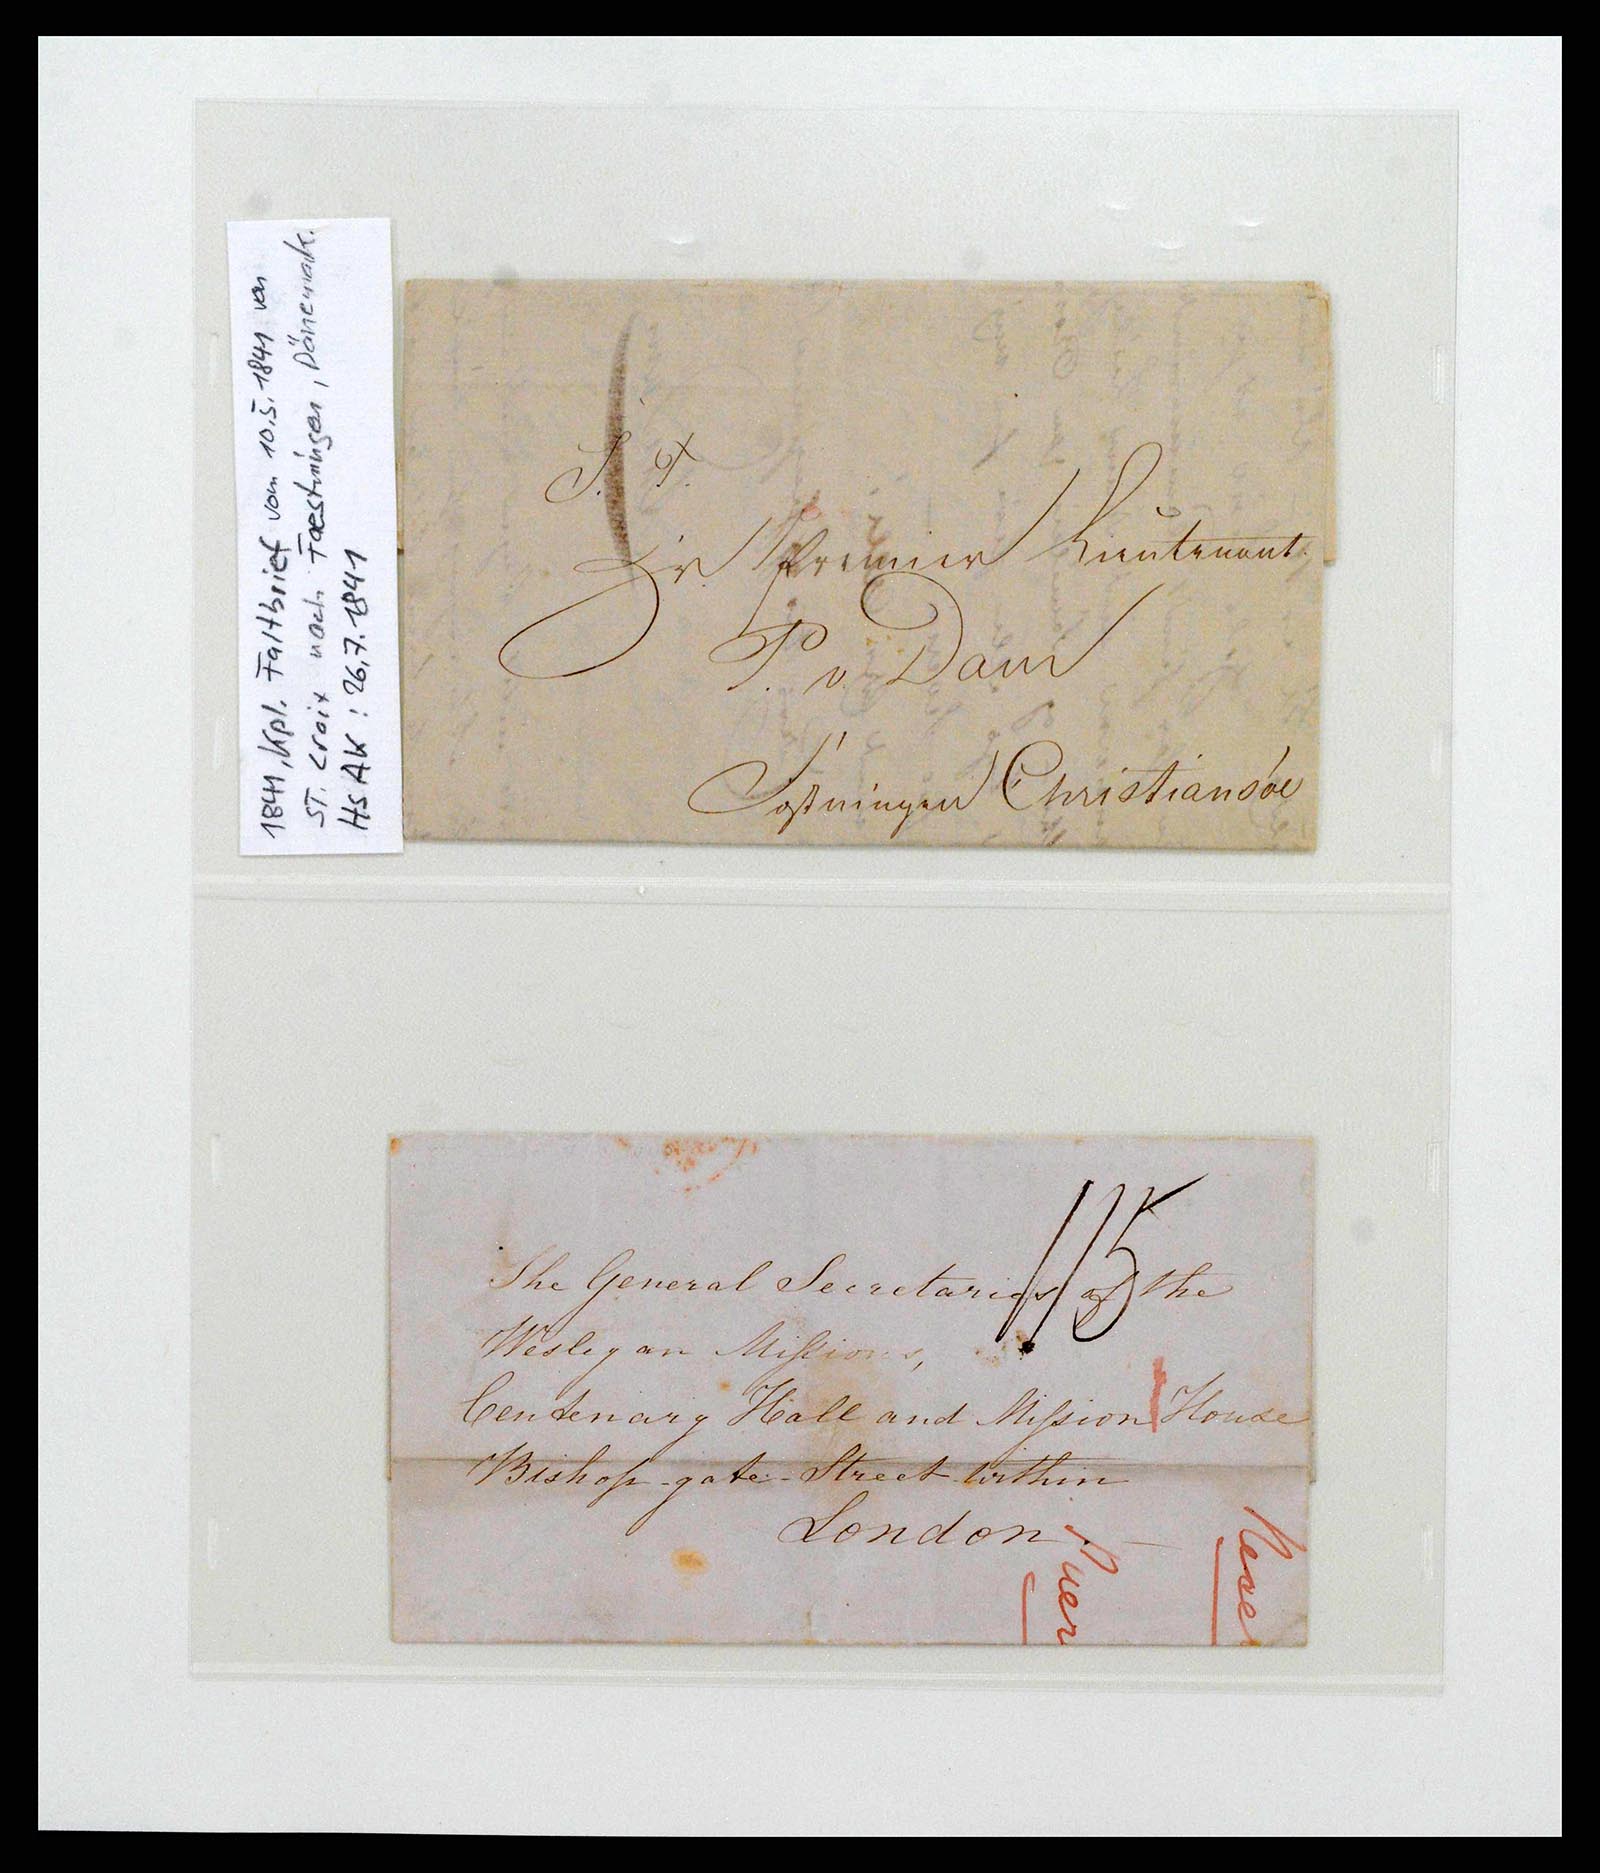 1841, Kpl. Faltbrief vom 10.5.1841 von
ST. Croix nach Faestningen, Dänemark.
Hs AK: 26.7.1841
S. T.
Hr Premier Lieutenant
P. v. Dam
Fæstningen Christiansöe
115
The General Secretaries of the
Wesleyan Missions,
Centenary Hall and Mission House
Bishop-gate-Street within
London.